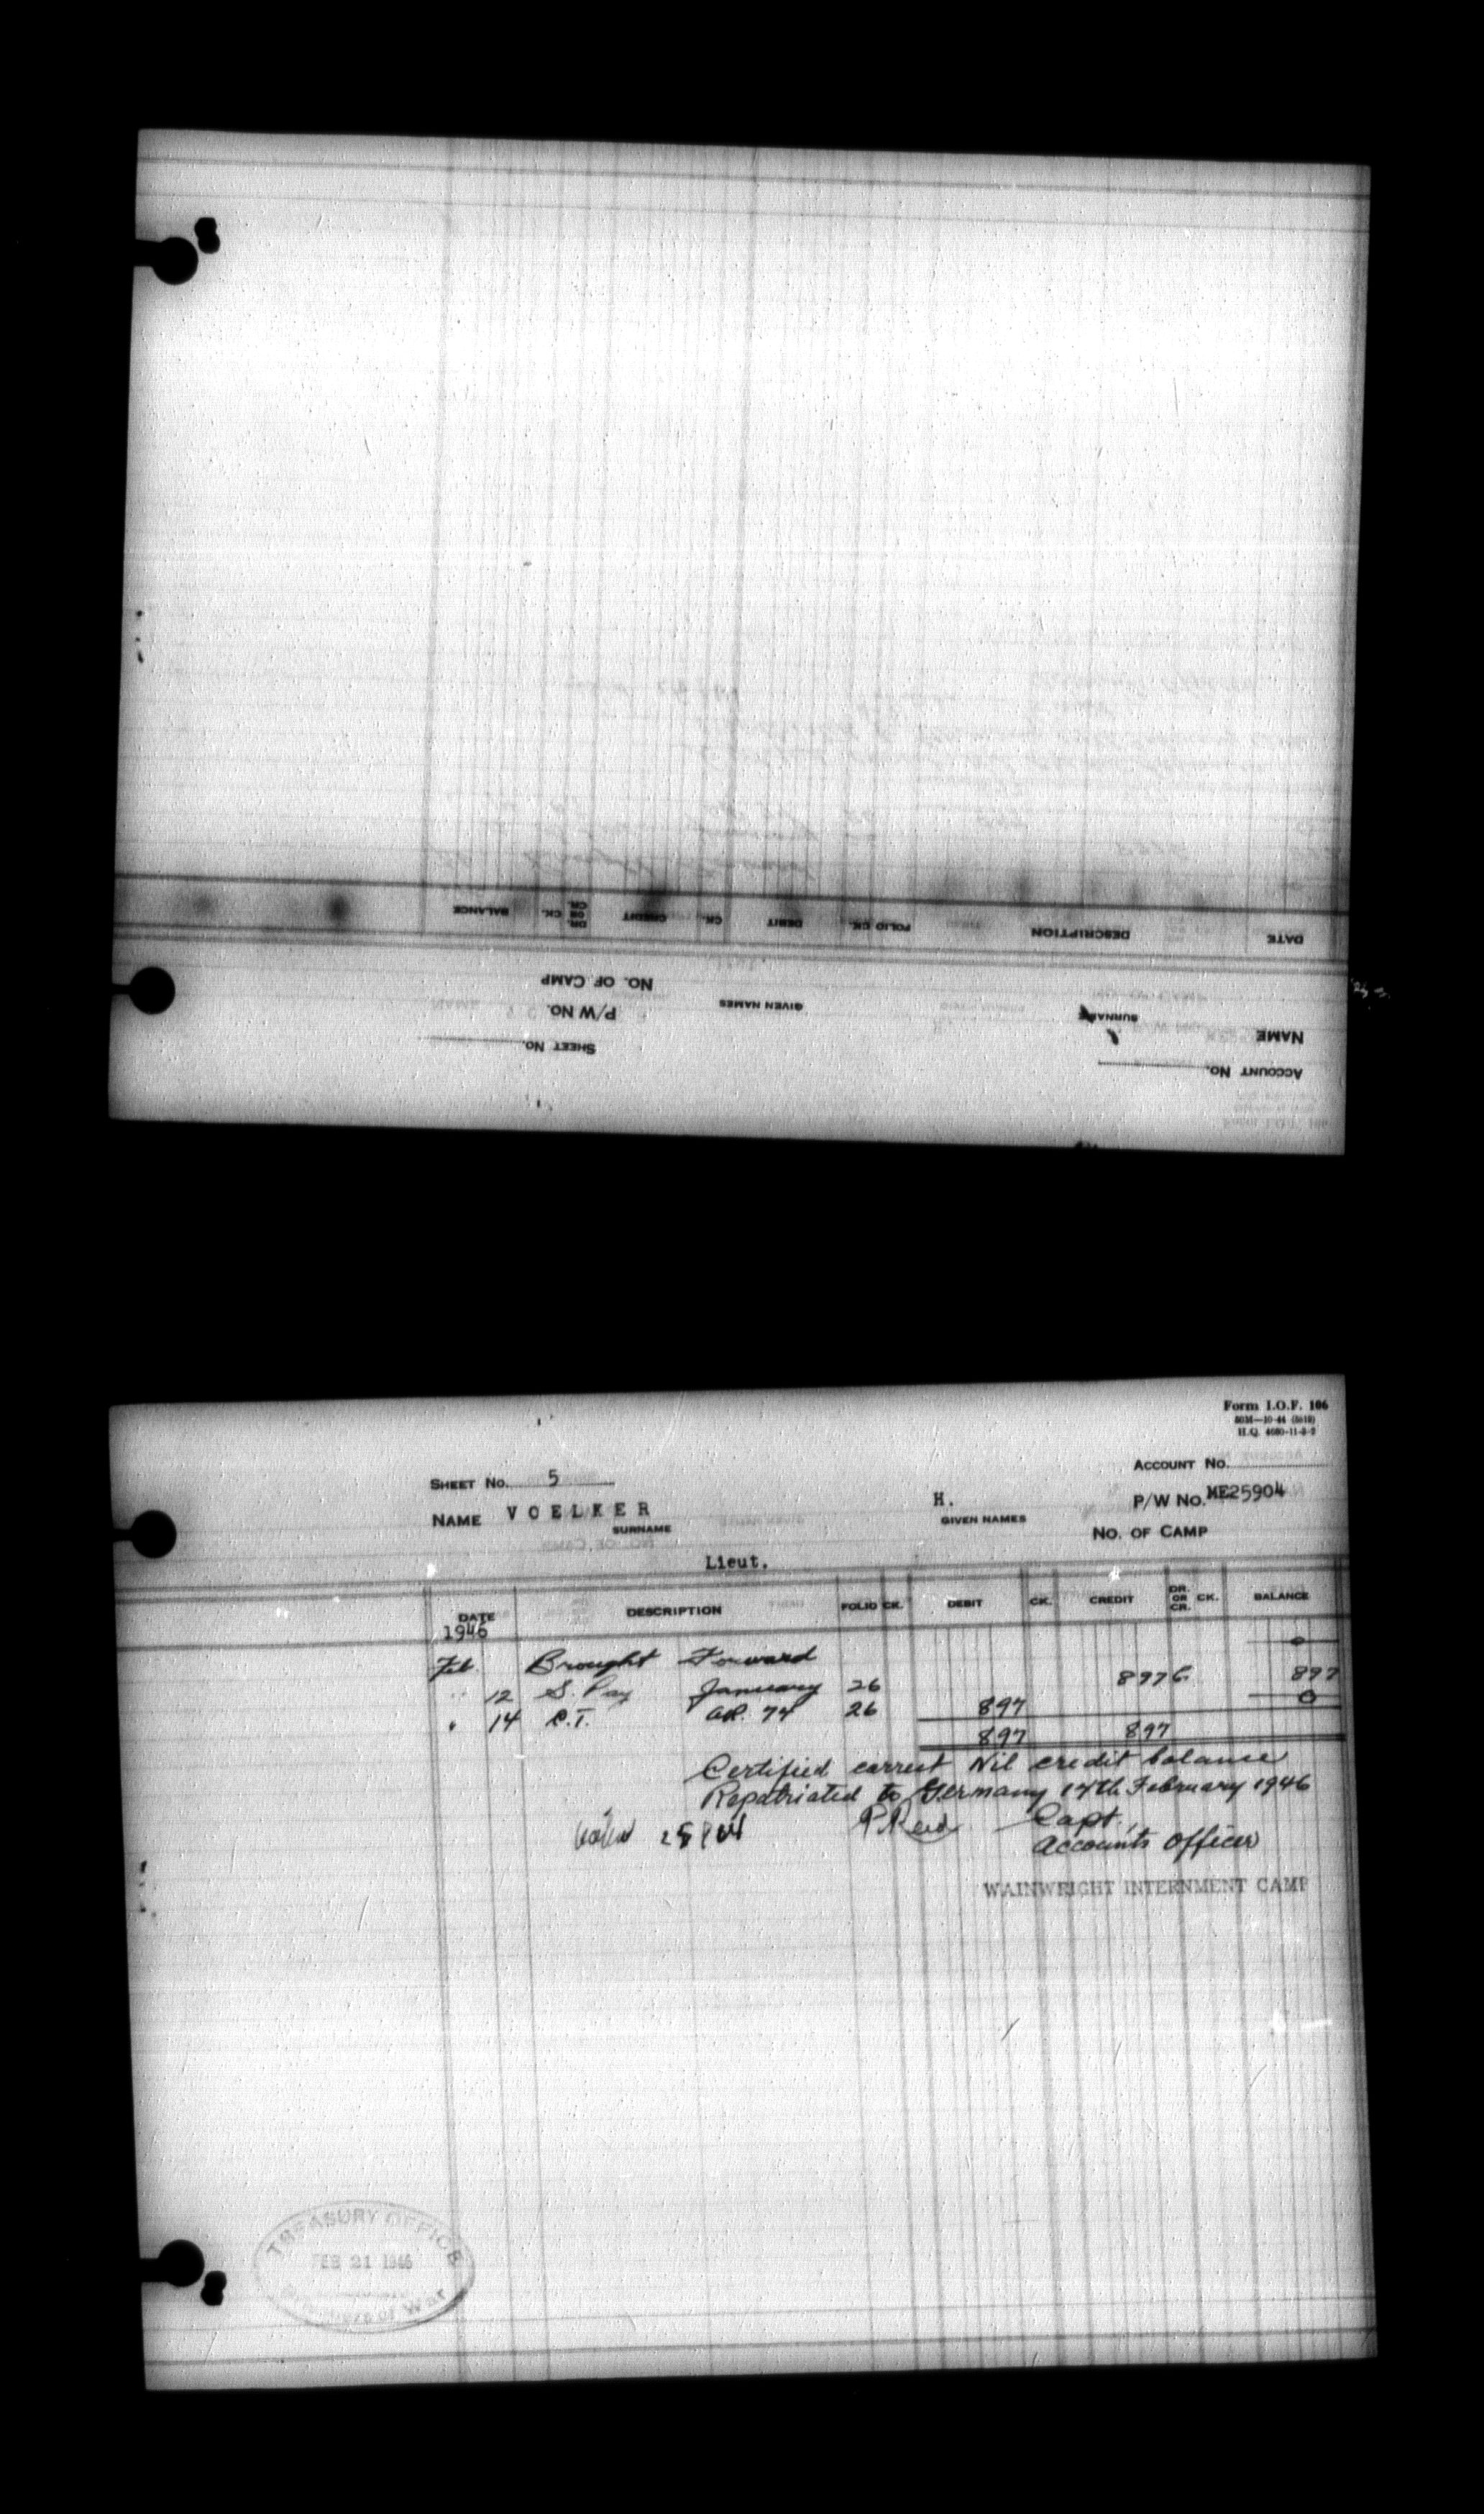 ACCOUNT No.
SHEET No.
NAME SURNAME GIVEN NAMES P/W No.
NO. OF CAMP
DATE DESCRIPTION FOLIO CK. DEBIT CK. CREDIT DR. OR CR. CK. BALANCE
Form I.O.F. 106
50M—10-44 (5618)
H.Q. 4080-11-8-2
ACCOUNT No.
SHEET No. 5
NAME VOELKER H. P/W No. ME25904
SURNAME GIVEN NAMES
NO. OF CAMP
Lieut.
DATE DESCRIPTION FOLIO CK. DEBIT CK. CREDIT DR. OR CR. CK. BALANCE
1946
Feb. Brought Forward 0
" 12 S. Pay January 26 897 C. 897
" 14 C.T. 26 897 0
897 897
Certified correct Nil credit balance
Repatriated to Germany 14th February 1946
P. Reid Capt.,
Accounts Officer
WAINWRIGHT INTERNMENT CAMP
TREASURY OFFICE
FEB 21 1946
Prisoners of War